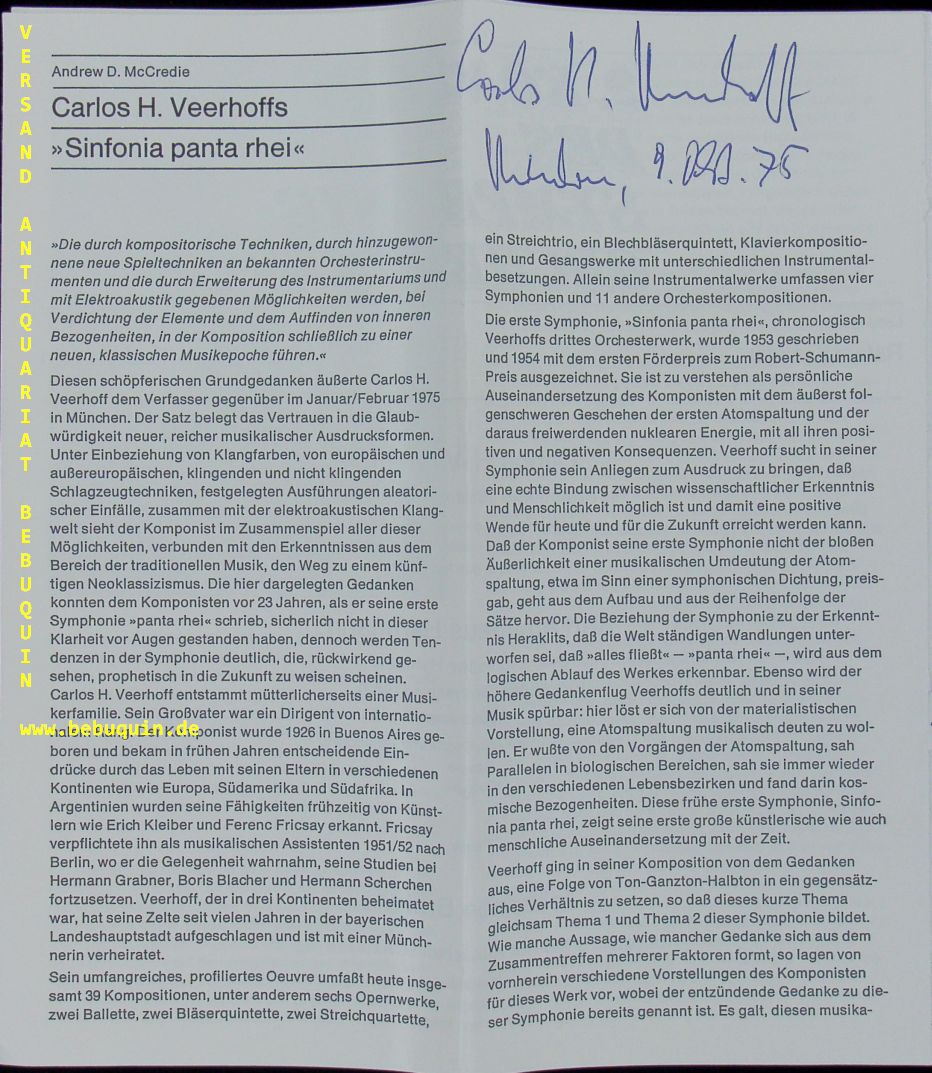 VERSAND ANTIQUARIAT BEBUQUIN
www.bebuquin.de
Andrew D. McCredie
Carlos H. Veerhoffs
»Sinfonia panta rhei«
Carlos H. Veerhoff
9. 75
»Die durch kompositorische Techniken, durch hinzugewon-
nene neue Spieltechniken an bekannten Orchesterinstru-
menten und die durch Erweiterung des Instrumentariums und
mit Elektroakustik gegebenen Möglichkeiten werden, bei
Verdichtung der Elemente und dem Auffinden von inneren
Bezogenheiten, in der Komposition schließlich zu einer
neuen, klassischen Musikepoche führen.«
Diesen schöpferischen Grundgedanken äußerte Carlos H.
Veerhoff dem Verfasser gegenüber im Januar/Februar 1975
in München. Der Satz belegt das Vertrauen in die Glaub-
würdigkeit neuer, reicher musikalischer Ausdrucksformen.
Unter Einbeziehung von Klangfarben, von europäischen und
außereuropäischen, klingenden und nicht klingenden
Schlagzeugtechniken, festgelegten Ausführungen aleatori-
scher Einfälle, zusammen mit der elektroakustischen Klang-
welt sieht der Komponist im Zusammenspiel aller dieser
Möglichkeiten, verbunden mit den Erkenntnissen aus dem
Bereich der traditionellen Musik, den Weg zu einem künf-
tigen Neoklassizismus. Die hier dargelegten Gedanken
konnten dem Komponisten vor 23 Jahren, als er seine erste
Symphonie »panta rhei« schrieb, sicherlich nicht in dieser
Klarheit vor Augen gestanden haben, dennoch werden Ten-
denzen in der Symphonie deutlich, die, rückwirkend ge-
sehen, prophetisch in die Zukunft zu weisen scheinen.
Carlos H. Veerhoff entstammt mütterlicherseits einer Musi-
kerfamilie. Sein Großvater war ein Dirigent von internatio-
Komponist wurde 1926 in Buenos Aires ge-
boren und bekam in frühen Jahren entscheidende Ein-
drücke durch das Leben mit seinen Eltern in verschiedenen
Kontinenten wie Europa, Südamerika und Südafrika. In
Argentinien wurden seine Fähigkeiten frühzeitig von Künst-
lern wie Erich Kleiber und Ferenc Fricsay erkannt. Fricsay
verpflichtete ihn als musikalischen Assistenten 1951/52 nach
Berlin, wo er die Gelegenheit wahrnahm, seine Studien bei
Hermann Grabner, Boris Blacher und Hermann Scherchen
fortzusetzen. Veerhoff, der in drei Kontinenten beheimatet
war, hat seine Zelte seit vielen Jahren in der bayerischen
Landeshauptstadt aufgeschlagen und ist mit einer Münch-
nerin verheiratet.
Sein umfangreiches, profiliertes Oeuvre umfaßt heute insge-
samt 39 Kompositionen, unter anderem sechs Opernwerke,
zwei Ballette, zwei Bläserquintette, zwei Streichquartette,
ein Streichtrio, ein Blechbläserquintett, Klavierkompositio-
nen und Gesangswerke mit unterschiedlichen Instrumental-
besetzungen. Allein seine Instrumentalwerke umfassen vier
Symphonien und 11 andere Orchesterkompositionen.
Die erste Symphonie, »Sinfonia panta rhei«, chronologisch
Veerhoffs drittes Orchesterwerk, wurde 1953 geschrieben
und 1954 mit dem ersten Förderpreis zum Robert-Schumann-
Preis ausgezeichnet. Sie ist zu verstehen als persönliche
Auseinandersetzung des Komponisten mit dem äußerst fol-
genschweren Geschehen der ersten Atomspaltung und der
daraus freiwerdenden nuklearen Energie, mit all ihren posi-
tiven und negativen Konsequenzen. Veerhoff sucht in seiner
Symphonie sein Anliegen zum Ausdruck zu bringen, daß
eine echte Bindung zwischen wissenschaftlicher Erkenntnis
und Menschlichkeit möglich ist und damit eine positive
Wende für heute und für die Zukunft erreicht werden kann.
Daß der Komponist seine erste Symphonie nicht der bloßen
Äußerlichkeit einer musikalischen Umdeutung der Atom-
spaltung, etwa im Sinn einer symphonischen Dichtung, preis-
gab, geht aus dem Aufbau und aus der Reihenfolge der
Sätze hervor. Die Beziehung der Symphonie zu der Erkennt-
nis Heraklits, daß die Welt ständigen Wandlungen unter-
worfen sei, daß »alles fließt« — »panta rhei« —, wird aus dem
logischen Ablauf des Werkes erkennbar. Ebenso wird der
höhere Gedankenflug Veerhoffs deutlich und in seiner
Musik spürbar: hier löst er sich von der materialistischen
Vorstellung, eine Atomspaltung musikalisch deuten zu wol-
len. Er wußte von den Vorgängen der Atomspaltung, sah
Parallelen in biologischen Bereichen, sah sie immer wieder
in den verschiedenen Lebensbezirken und fand darin kos-
mische Bezogenheiten. Diese frühe erste Symphonie, Sinfo-
nia panta rhei, zeigt seine erste große künstlerische wie auch
menschliche Auseinandersetzung mit der Zeit.
Veerhoff ging in seiner Komposition von dem Gedanken
aus, eine Folge von Ton-Ganzton-Halbton in ein gegensätz-
liches Verhältnis zu setzen, so daß dieses kurze Thema
gleichsam Thema 1 und Thema 2 dieser Symphonie bildet.
Wie manche Aussage, wie mancher Gedanke sich aus dem
Zusammentreffen mehrerer Faktoren formt, so lagen von
vornherein verschiedene Vorstellungen des Komponisten
für dieses Werk vor, wobei der entzündende Gedanke zu die-
ser Symphonie bereits genannt ist. Es galt, diesen musika-